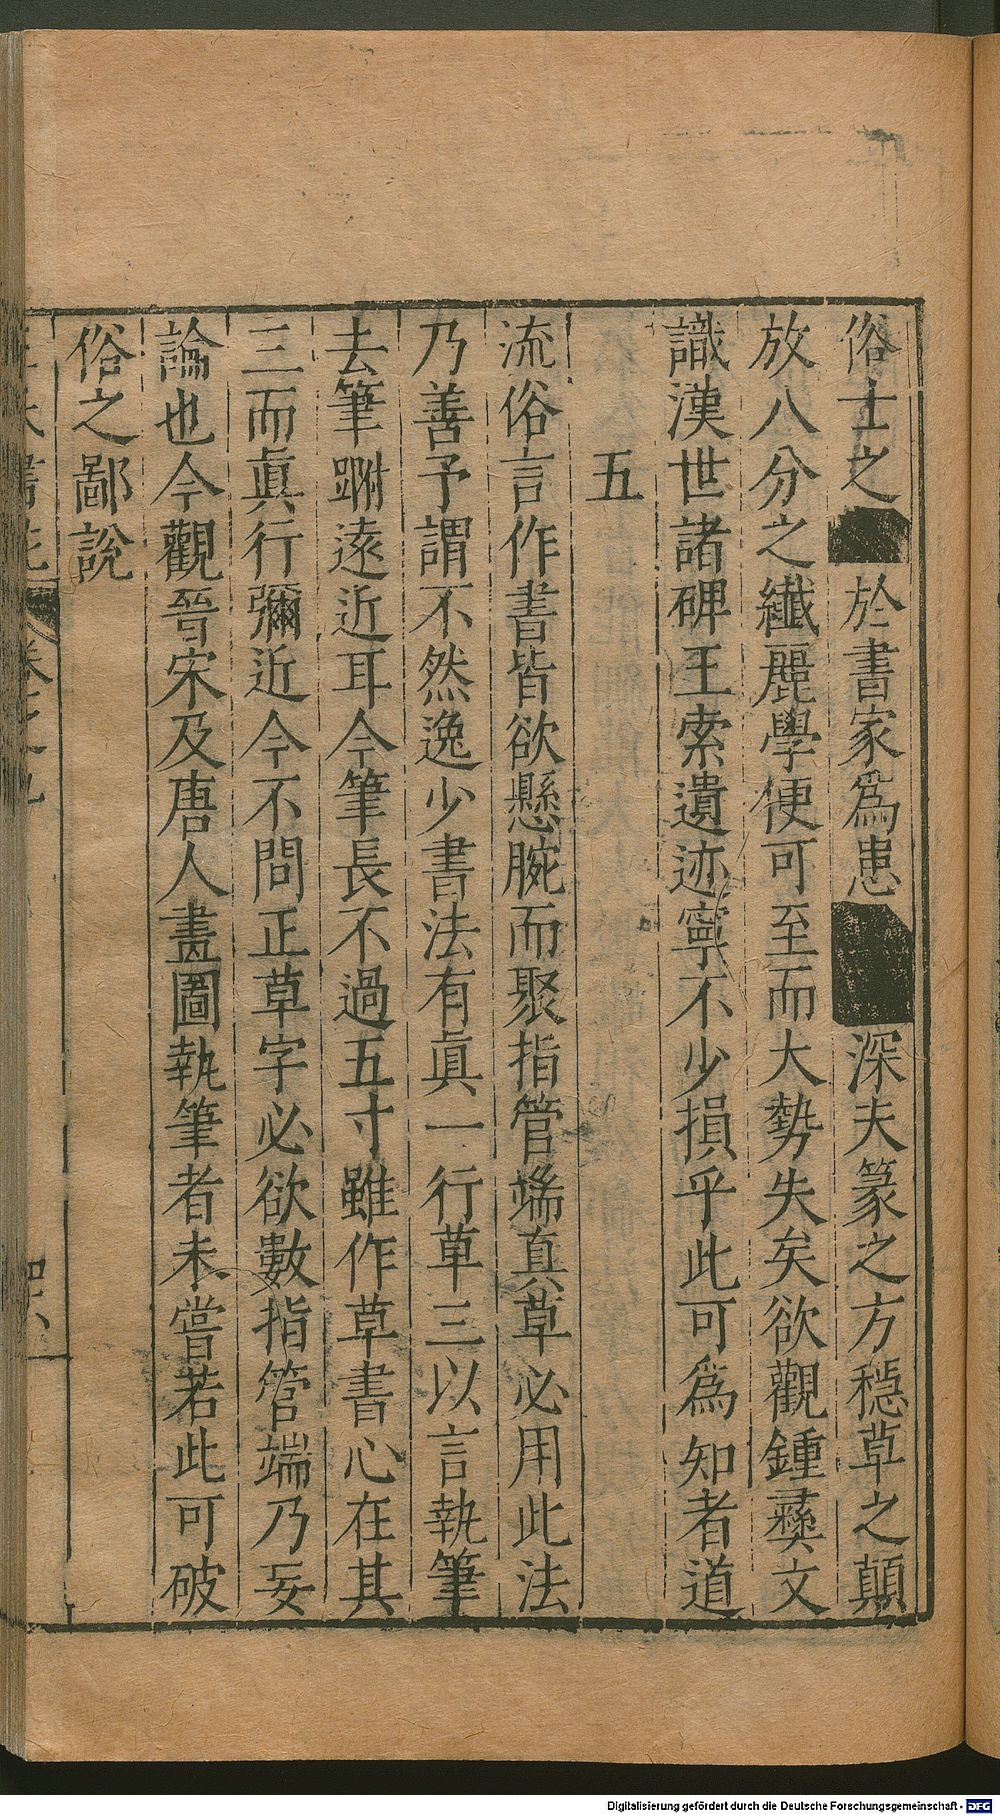 俗士之■於書家爲患■■深夫篆之方穩草之顛
放八分之纖麗學便可至而大勢失矣欲觀鍾彛文
識漢世諸碑王索遺迹寧不少損乎此可爲知者道
五
流俗言作書皆欲懸腕而聚指管端真草必用此法
乃善予謂不然逸少書法有眞一行草三以言執筆
去筆跗遠近耳今筆長不過五寸雖作草書心在其
三而眞行彌近今不問正草字必欲數指管端乃妄
論也今觀晉宋及唐人畫圖執筆者未嘗若此可破
俗之鄙說
書苑 卷之九
四六
Digitalisierung gefördert durch die Deutsche Forschungsgemeinschaft - DFG